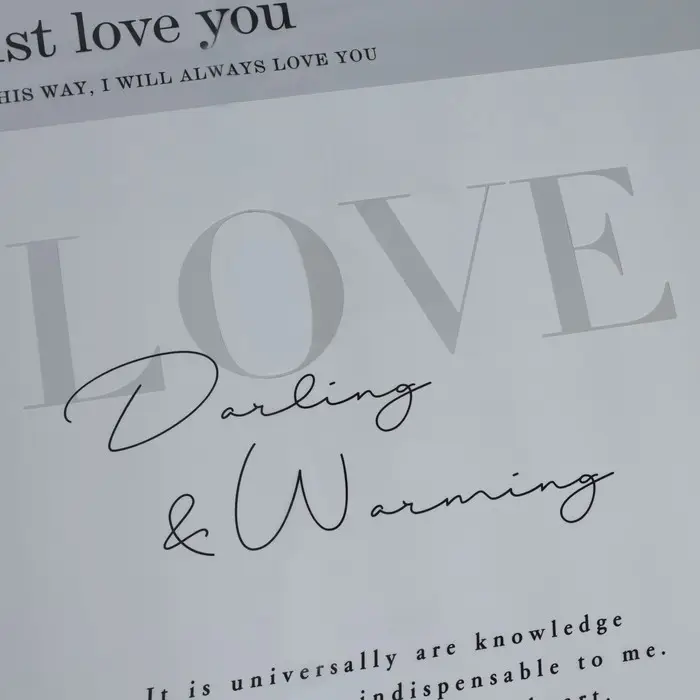 love you
WAY, I WILL ALWAYS LOVE YOU
LOVE
Darling
& Warming
It is universally are knowledge
indispensable to me.